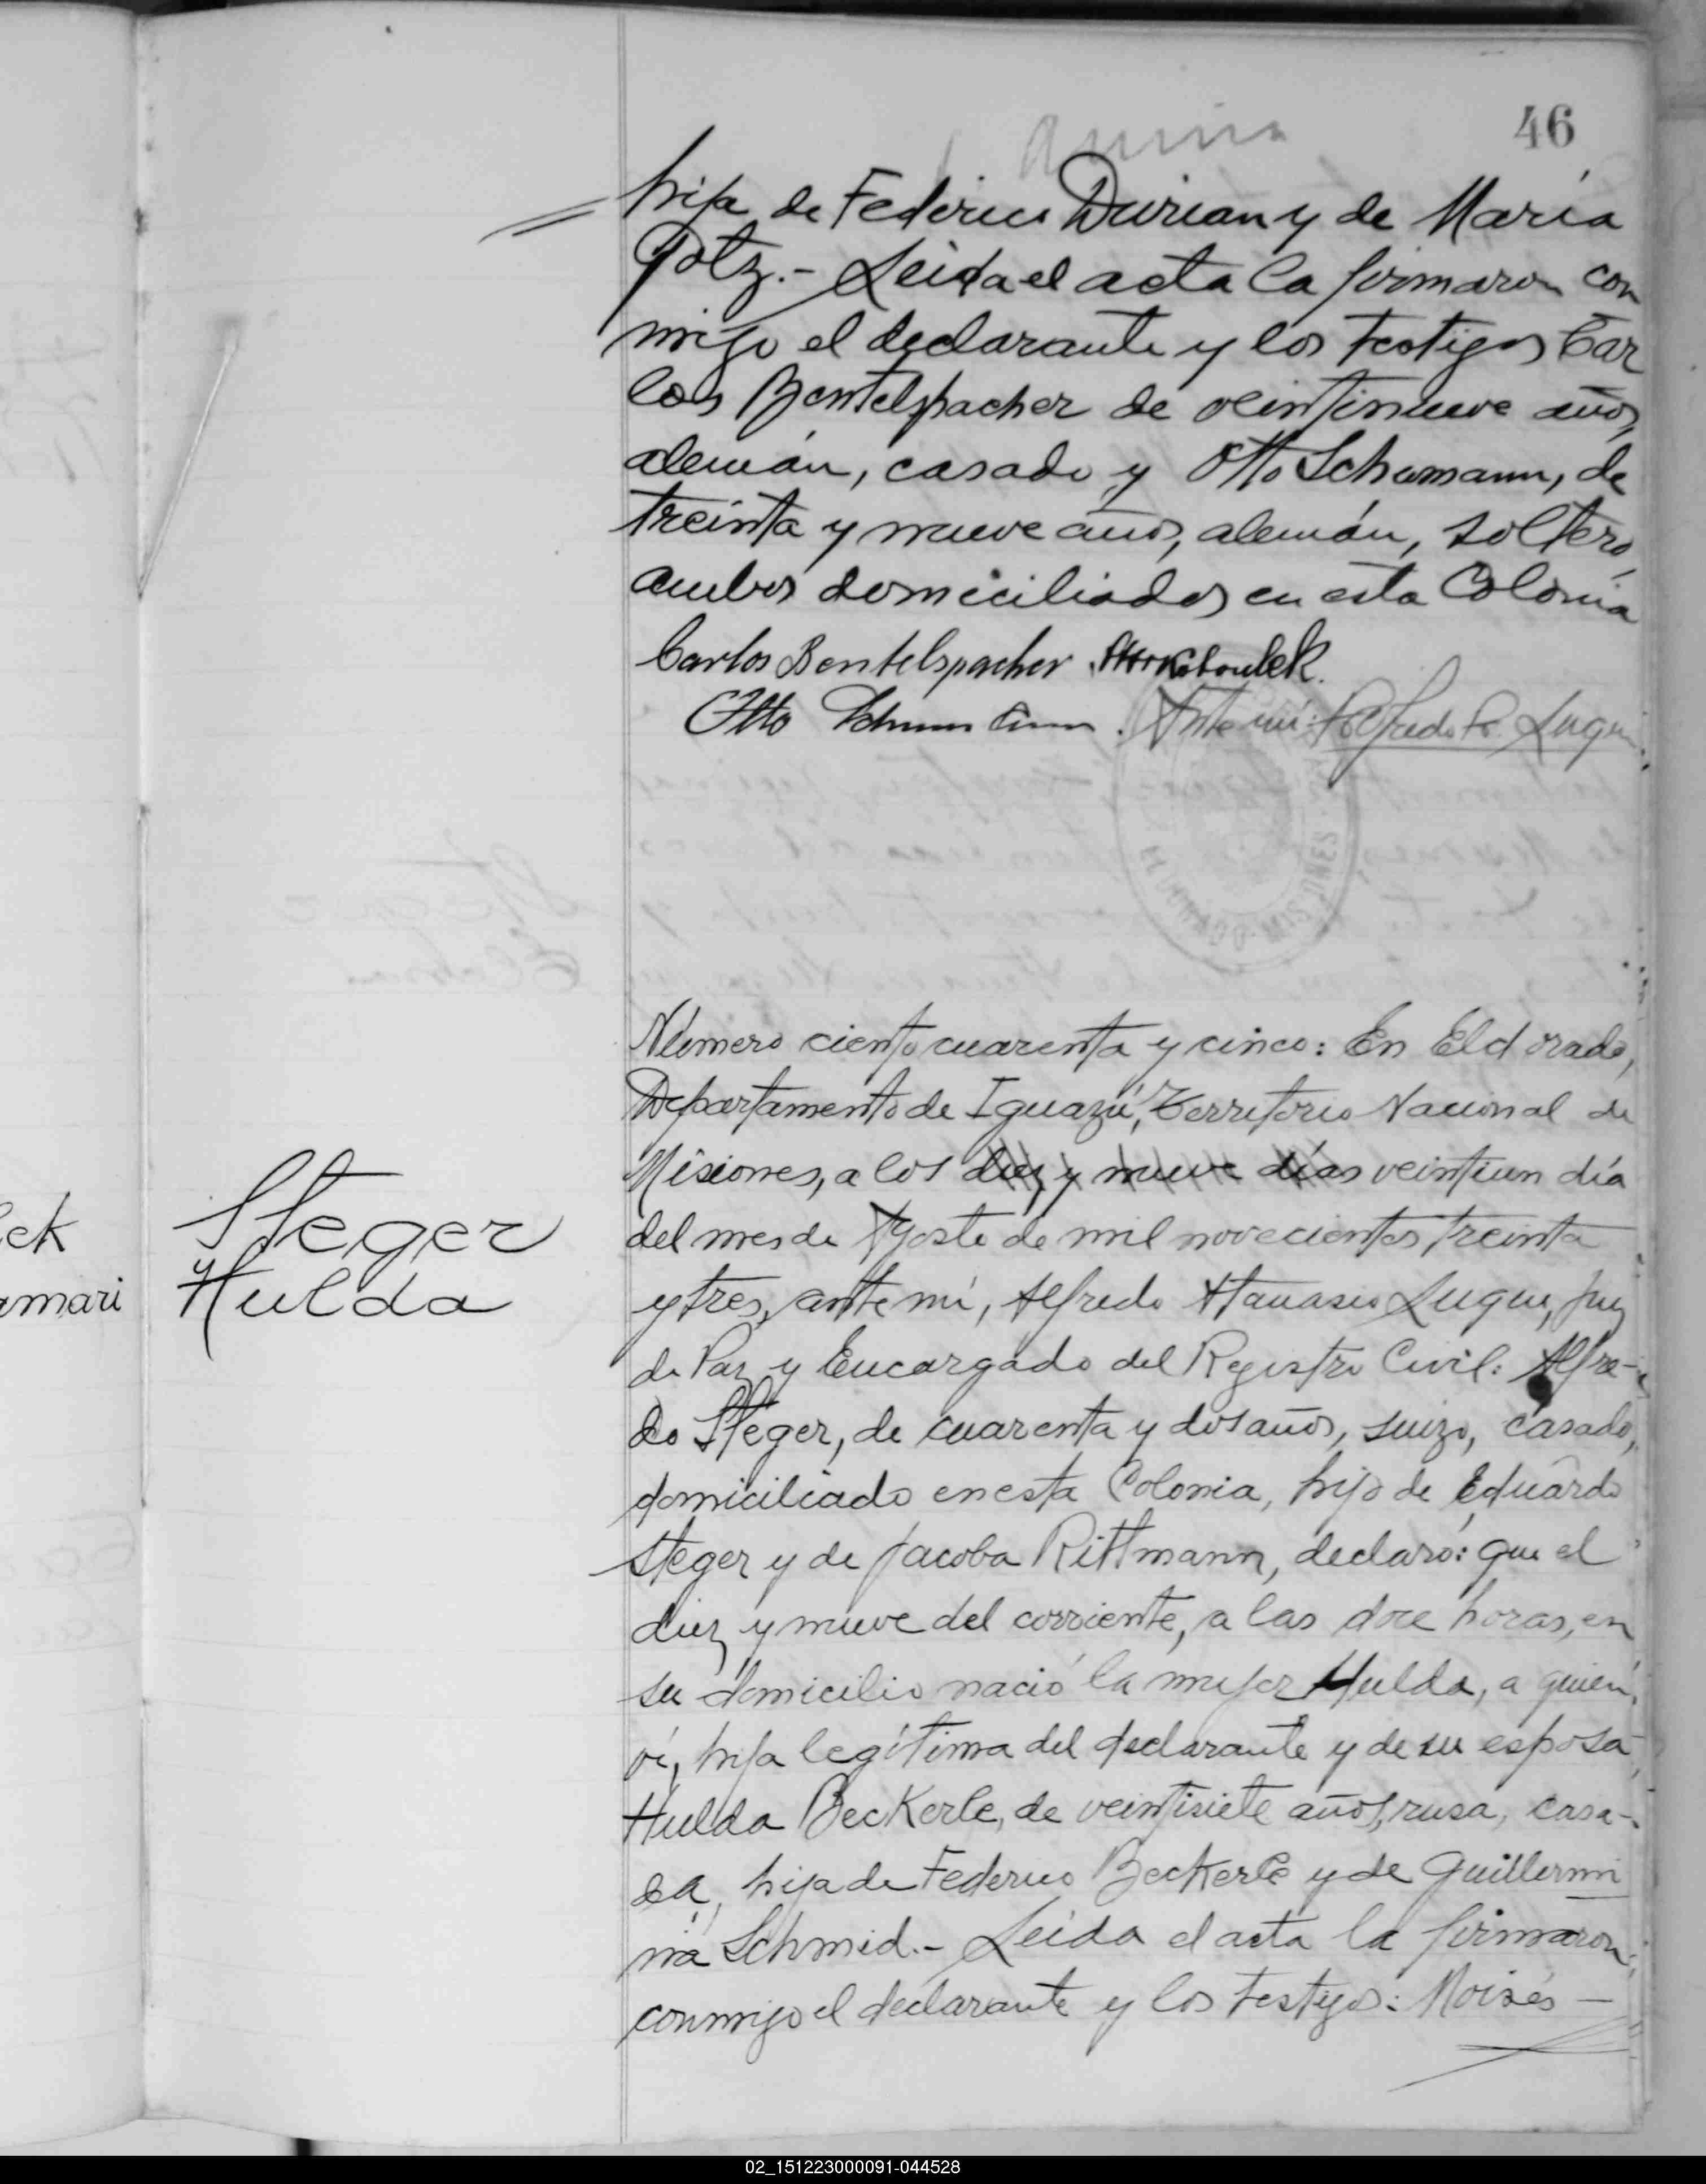 46
hija de Federico Durian y de María
Potz.- Leída el acta la firmaron con
migo el declarante y los testigos Car
los Bentelspacher de veintinueve años,
alemán, casado y Otto Schumann, de
treinta y nueve años, alemán, soltero,
ambos domiciliados en esta Colonia
Carlos Bentelspacher
Otto Schumann. Ante mí: Alfredo A. Luque
ELDORADO - MISIONES
Número ciento cuarenta y cinco: En Eldorado,
Departamento de Iguazú, Territorio Nacional de
Misiones, a los diez y nueve días veintiun día
del mes de Agosto de mil novecientos treinta
y tres, ante mí, Alfredo Atanasio Luque, Juez
de Paz y Encargado del Registro Civil: Alfre-
do Steger, de cuarenta y dos años, suizo, casado,
domiciliado en esta Colonia, hijo de Eduardo
Steger y de Jacoba Rittmann, declaró: que el
diez y nueve del corriente, a las doce horas, en
su domicilio nació la mujer Hulda, a quien
ví, hija legítima del declarante y de su esposa,
Hulda Beckerle, de veintisiete años, rusa, casa-
da, hija de Federico Beckerle y de Guillermi
na Schmid.- Leída el acta la firmaron,
conmigo el declarante y los testigos: Moisés -
Steger
y
Hulda
ek
mari
02_151223000091-044528